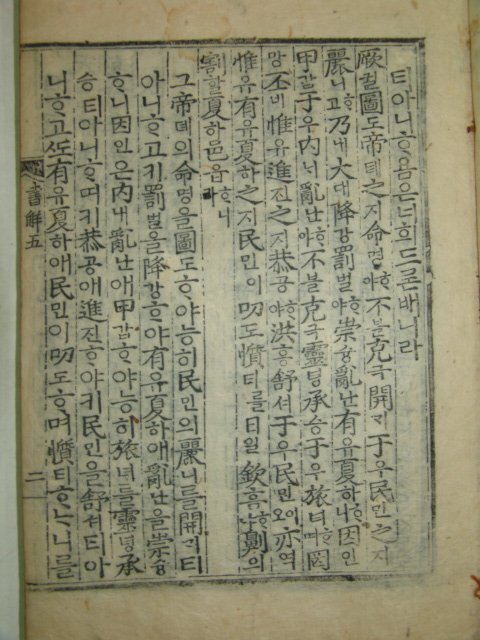 티아니ᄒᆞ욤은너희드론배니라
厥궐圖도帝뎨之지命명ᄒᆞ야不블克극開ᄀᆡ于우民민之지
麗니ᄒᆞ고乃내大대降강罰벌ᄒᆞ야崇슝亂난有유夏하ᄒᆞ니因인
甲갑于우內ᄂᆡ亂난ᄒᆞ야不블克극靈령承승于우旅녀ᄒᆞ며罔
망丕비惟유進진之지恭공ᄒᆞ야洪홍舒셔于우民민이오亦역
惟유有유夏하之지民민이叨도懫티를日일欽흠ᄒᆞ야劓의
割할夏하邑읍ᄒᆞ니라
그帝뎨의命명을圖도ᄒᆞ야能히民민의麗니를開ᄀᆡ티
아니ᄒᆞ고키罰벌을降강ᄒᆞ야有유夏하애亂난을崇슝
ᄒᆞ니因인은內ᄂᆡ亂난애甲갑ᄒᆞ야能히旅녀를靈령承
승티아니ᄒᆞ며키恭공애進진ᄒᆞ야키民민을舒셔티아
니ᄒᆞ고ᄯᅩ有유夏하애民민이叨도ᄒᆞ며懫티ᄒᆞᄂᆞ니를
書解五 二